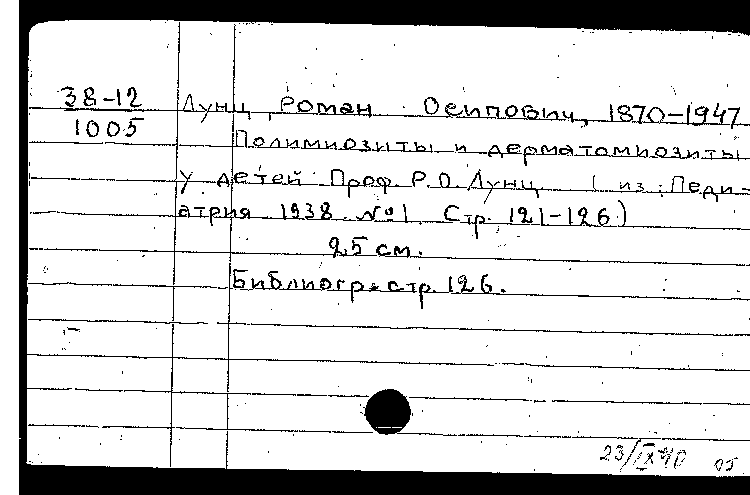 38-12
1005
Лунц, Роман Осипович, 1870-1947
Полимиозиты и дерматомиозиты
у детей Проф. Р.О. Лунц (из: Педи-
атрия 1938 №1 Стр. 121-126)
25 см.
Библиогр. стр. 126.
23/IX 40